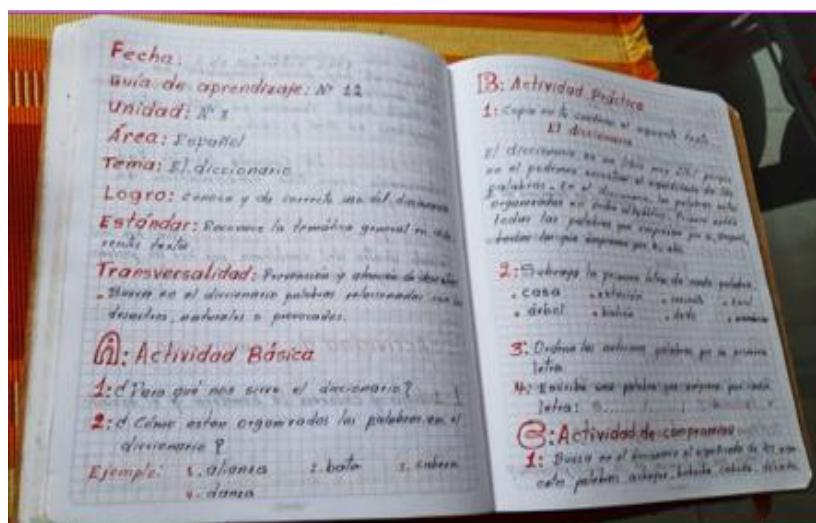 Fecha:
Guía de aprendizaje: N° 12
Unidad: N°
Área: Español
Tema: El diccionario
Logro: conoce y da correcto uso del diccionario
Estándar: Reconoce la temática general en
textos
Transversalidad: Prevención y atención de desastres
Busca en el diccionario palabras relacionadas con los
desastres naturales o provocados.
A: Actividad Básica
1: ¿Para qué nos sirve el diccionario?
2: ¿Cómo estan organizados las palabras en el
diccionario?
Ejemplo: 1. alianza 2. bota 3. cabeza
4. danza
B: Actividad Práctica
1: Copia en tu cuaderno el siguiente texto
El diccionario
El diccionario es un libro muy útil porque
en el podemos encontrar el significado de las
palabras. En el diccionario, las palabras están
organizadas en orden alfabético. Primero están
todas las palabras que empiezan por a, después,
todas las que empiezan por b, etc.
2: Subraya la primera letra de cada palabra.
. casa . . .
. árbol . . dado .
3: Ordena las anteriores palabras por su primera
letra
4: Escribe una palabra que empiece por cada
letra:
C: Actividad de compromiso
1: Busca en el diccionario el significado de las
palabras